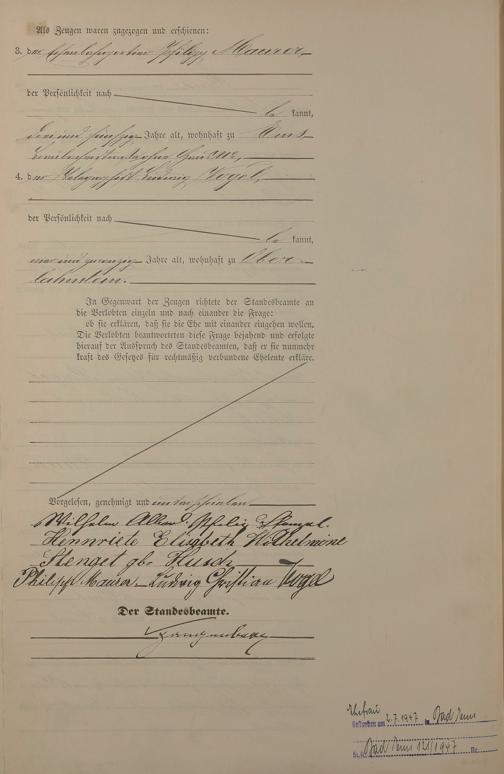 Als Zeugen waren zugezogen und erschienen:
3. der Philipp Maurer,
der Persönlichkeit nach
be kannt,
und fünfzig Jahre alt, wohnhaft zu Ems
4. der Telegraphist Ludwig Vogel,
der Persönlichkeit nach
be kannt,
und zwanzig Jahre alt, wohnhaft zu Ober-
lahnstein.
In Gegenwart der Zeugen richtete der Standesbeamte an
die Verlobten einzeln und nach einander die Frage:
ob sie erklären, daß sie die Ehe mit einander eingehen wollen.
Die Verlobten beantworteten diese Frage bejahend und erfolgte
hierauf der Ausspruch des Standesbeamten, daß er sie nunmehr
kraft des Gesetzes für rechtmäßig verbundene Eheleute erkläre.
Vorgelesen, genehmigt und unterschrieben
Wilhelm Philipp Stengel.
Henriete Elisabeth Wilhelmine
Stengel gb. Husch
Philipp Maurer Ludwig Christian Vogel
Der Standesbeamte.
Ehefrau
Gestorben am 2.7.1947 in Bad Ems
St.A. Bad Ems 121/1947 Nr.